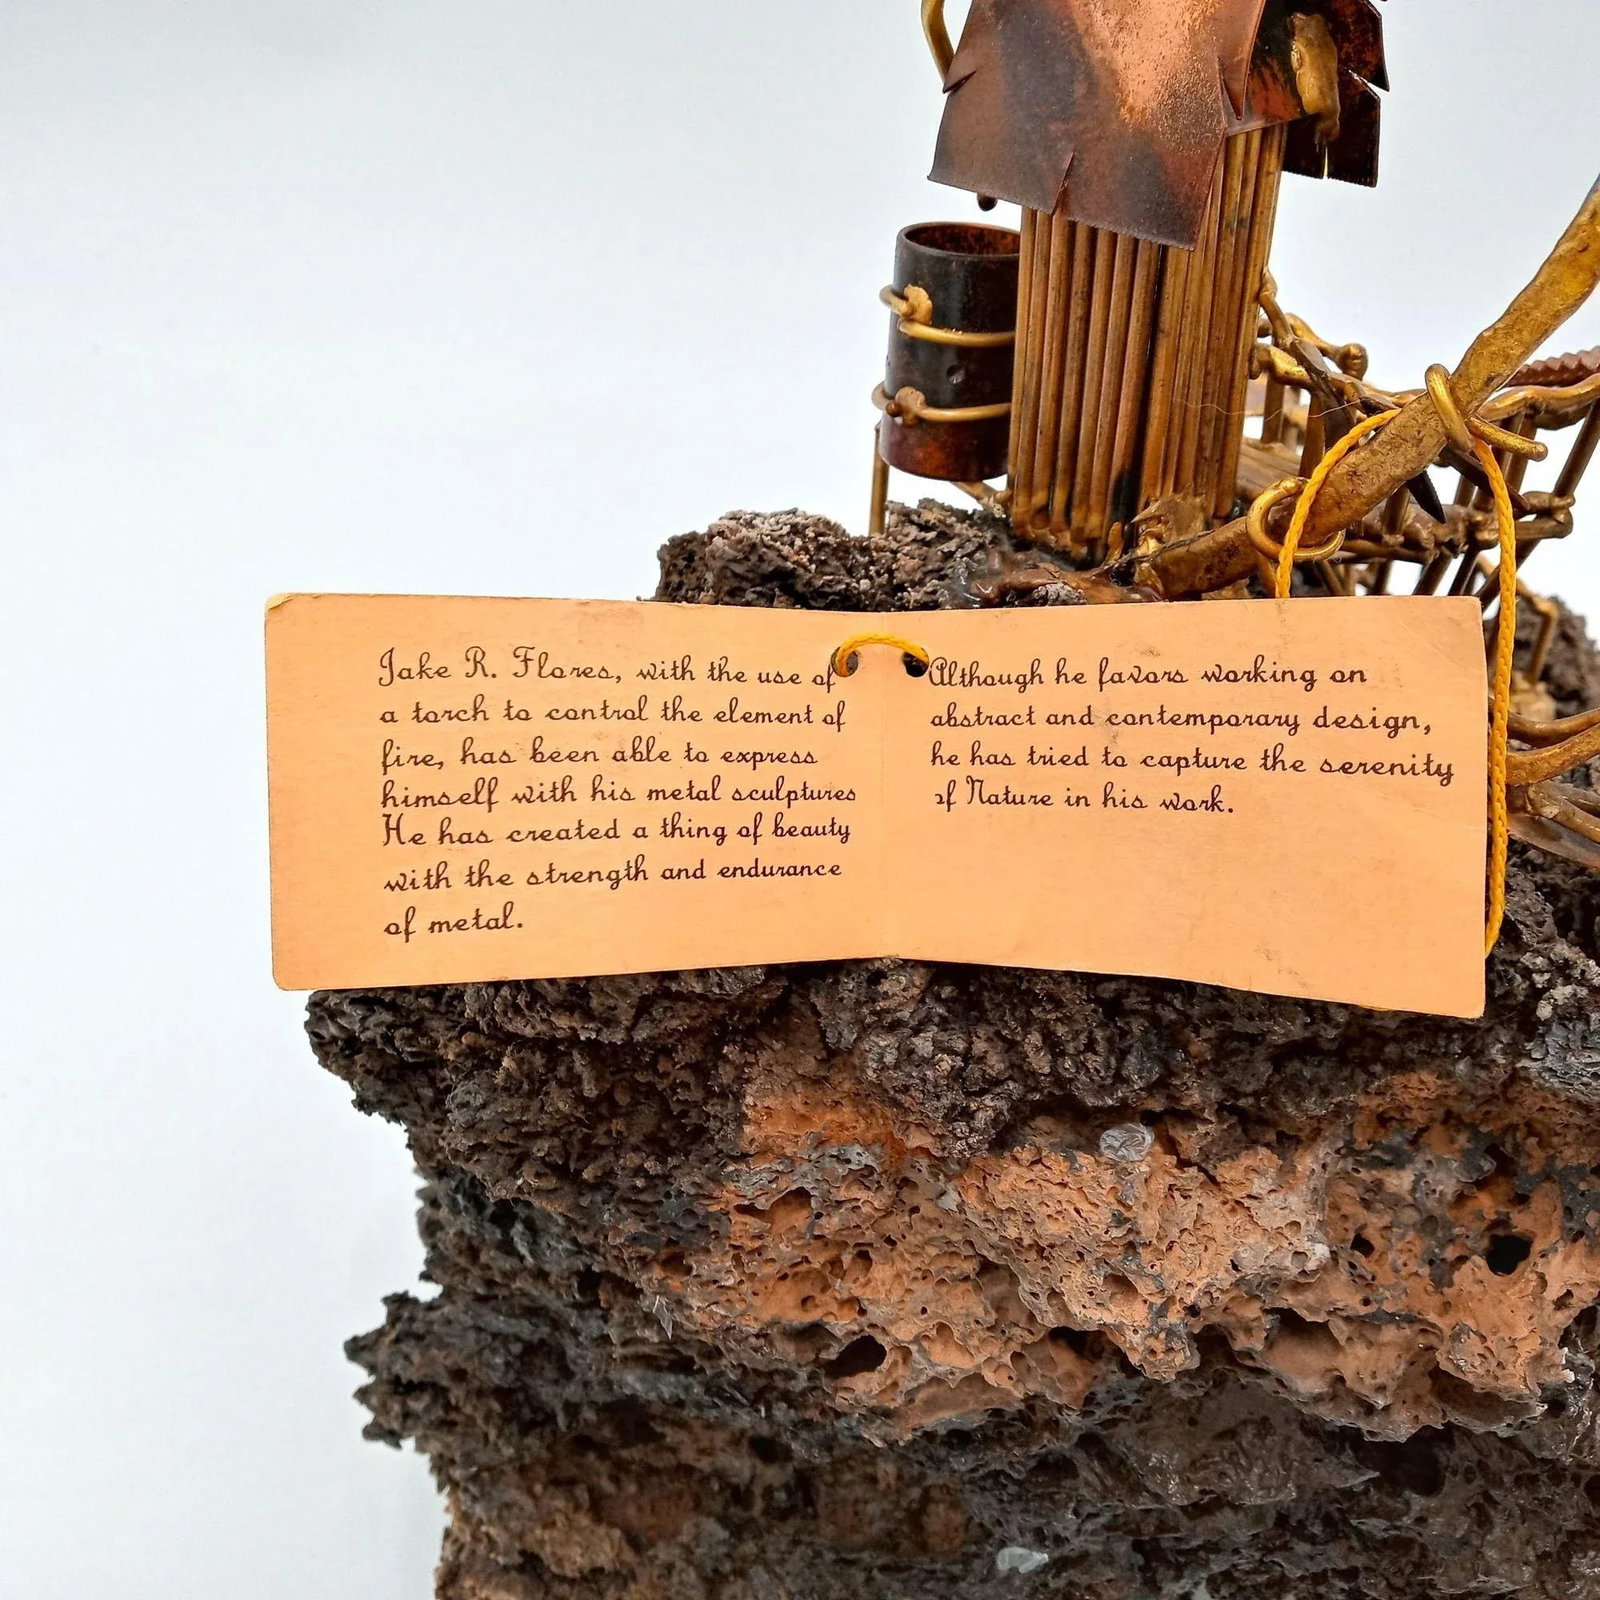 Jake R. Flores, with the use of
a torch to control the element of
fire, has been able to express
himself with his metal sculptures
He has created a thing of beauty
with the strength and endurance
of metal.
Although he favors working on
abstract and contemporary design,
he has tried to capture the serenity
of Nature in his work.